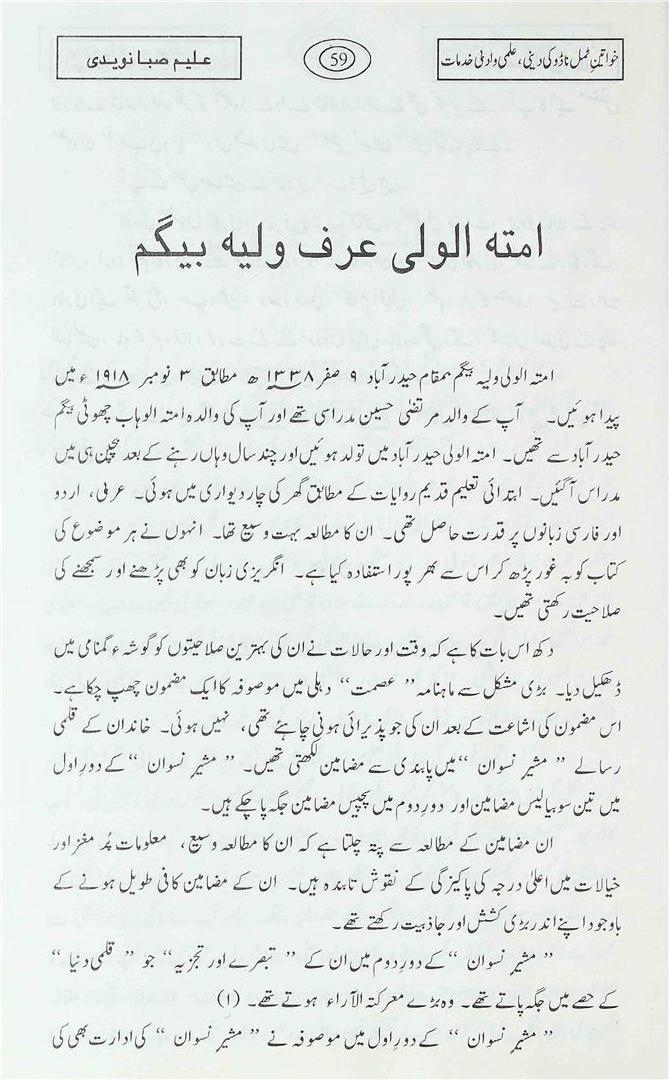 خواتینِ ٹمل ناڈو کی دینی، علمی و ادبی خدمات
59
علیم صبا نویدی
امتہ الولی عرف ولیہ بیگم
امتہ الولی ولیہ بیگم بمقام حیدرآباد ۹ صفر ۱۳۳۸ ھ مطابق ۳ نومبر ۱۹۱۸ ء میں
پیدا ہوئیں۔ آپ کے والد مرتضیٰ حسین مدراسی تھے اور آپ کی والدہ امتہ الوہاب چھوٹی بیگم
حیدرآباد سے تھیں۔ امتہ الولی حیدرآباد میں تولد ہوئیں اور چند سال وہاں رہنے کے بعد بچپن ہی میں
مدراس آگئیں۔ ابتدائی تعلیم قدیم روایات کے مطابق گھر کی چار دیواری میں ہوئی۔ عربی، اردو
اور فارسی زبانوں پر قدرت حاصل تھی۔ ان کا مطالعہ بہت وسیع تھا۔ انہوں نے ہر موضوع کی
کتاب کو بہ غور پڑھ کر اس سے بھر پور استفادہ کیا ہے۔ انگریزی زبان کو بھی پڑھنے اور سمجھنے کی
صلاحیت رکھتی تھیں۔
دکھ اس بات کا ہے کہ وقت اور حالات نے ان کی بہترین صلاحیتوں کو گوشہء گمنامی میں
ڈھکیل دیا۔ بڑی مشکل سے ماہنامہ ’’ عصمت ‘‘ دہلی میں موصوفہ کا ایک مضمون چھپ چکا ہے۔
اس مضمون کی اشاعت کے بعد ان کی جو پذیرائی ہونی چاہئے تھی، نہیں ہوئی۔ خاندان کے قلمی
رسالے ’’ مشیرِ نسوان ‘‘ میں پابندی سے مضامین لکھتی تھیں۔ ’’ مشیرِ نسوان ‘‘ کے دورِ اول
میں تین سو بیالیس مضامین اور دورِ دوم میں پچیس مضامین جگہ پا چکے ہیں۔
ان مضامین کے مطالعہ سے پتہ چلتا ہے کہ ان کا مطالعہ وسیع، معلومات پُر مغز اور
خیالات میں اعلیٰ درجہ کی پاکیزگی کے نقوش تابندہ ہیں۔ ان کے مضامین کافی طویل ہونے کے
باوجود اپنے اندر بڑی کشش اور جاذبیت رکھتے تھے۔
’’ مشیرِ نسوان ‘‘ کے دورِ دوم میں ان کے ’’ تبصرے اور تجزیہ ‘‘ جو ’’ قلمی دنیا ‘‘
کے حصے میں جگہ پاتے تھے۔ وہ بڑے معرکتہ الآراء ہوتے تھے۔ (۱)
’’ مشیرِ نسوان ‘‘ کے دورِ اول میں موصوفہ نے ’’ مشیرِ نسوان ‘‘ کی ادارت بھی کی